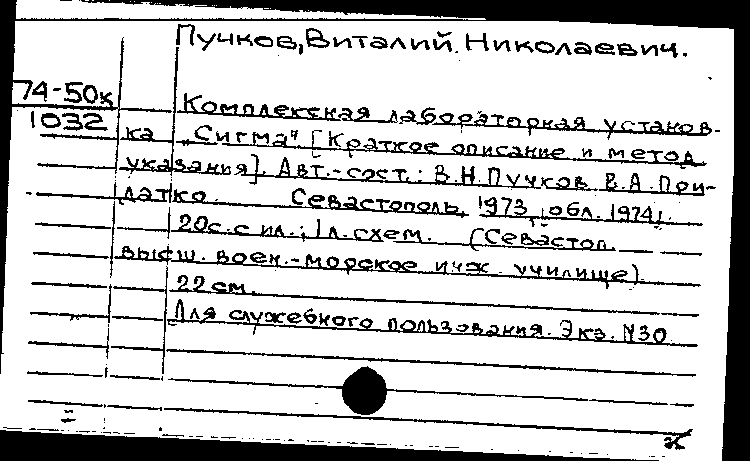 Пучков, Виталий Николаевич.
74-50к
1032
Комплексная лабораторная установ-
ка „Сигма" [Краткое описание и метод.
указания]. Авт.-сост.: В.Н.Пучков, В.А.При-
датко. Севастополь, 1973, [обл. 1974].
20с. с ил.; 1л. схем. (Севастоп.
высш. воен.-морское инж. училище).
22 см.
Для служебного пользования. Экз. N30